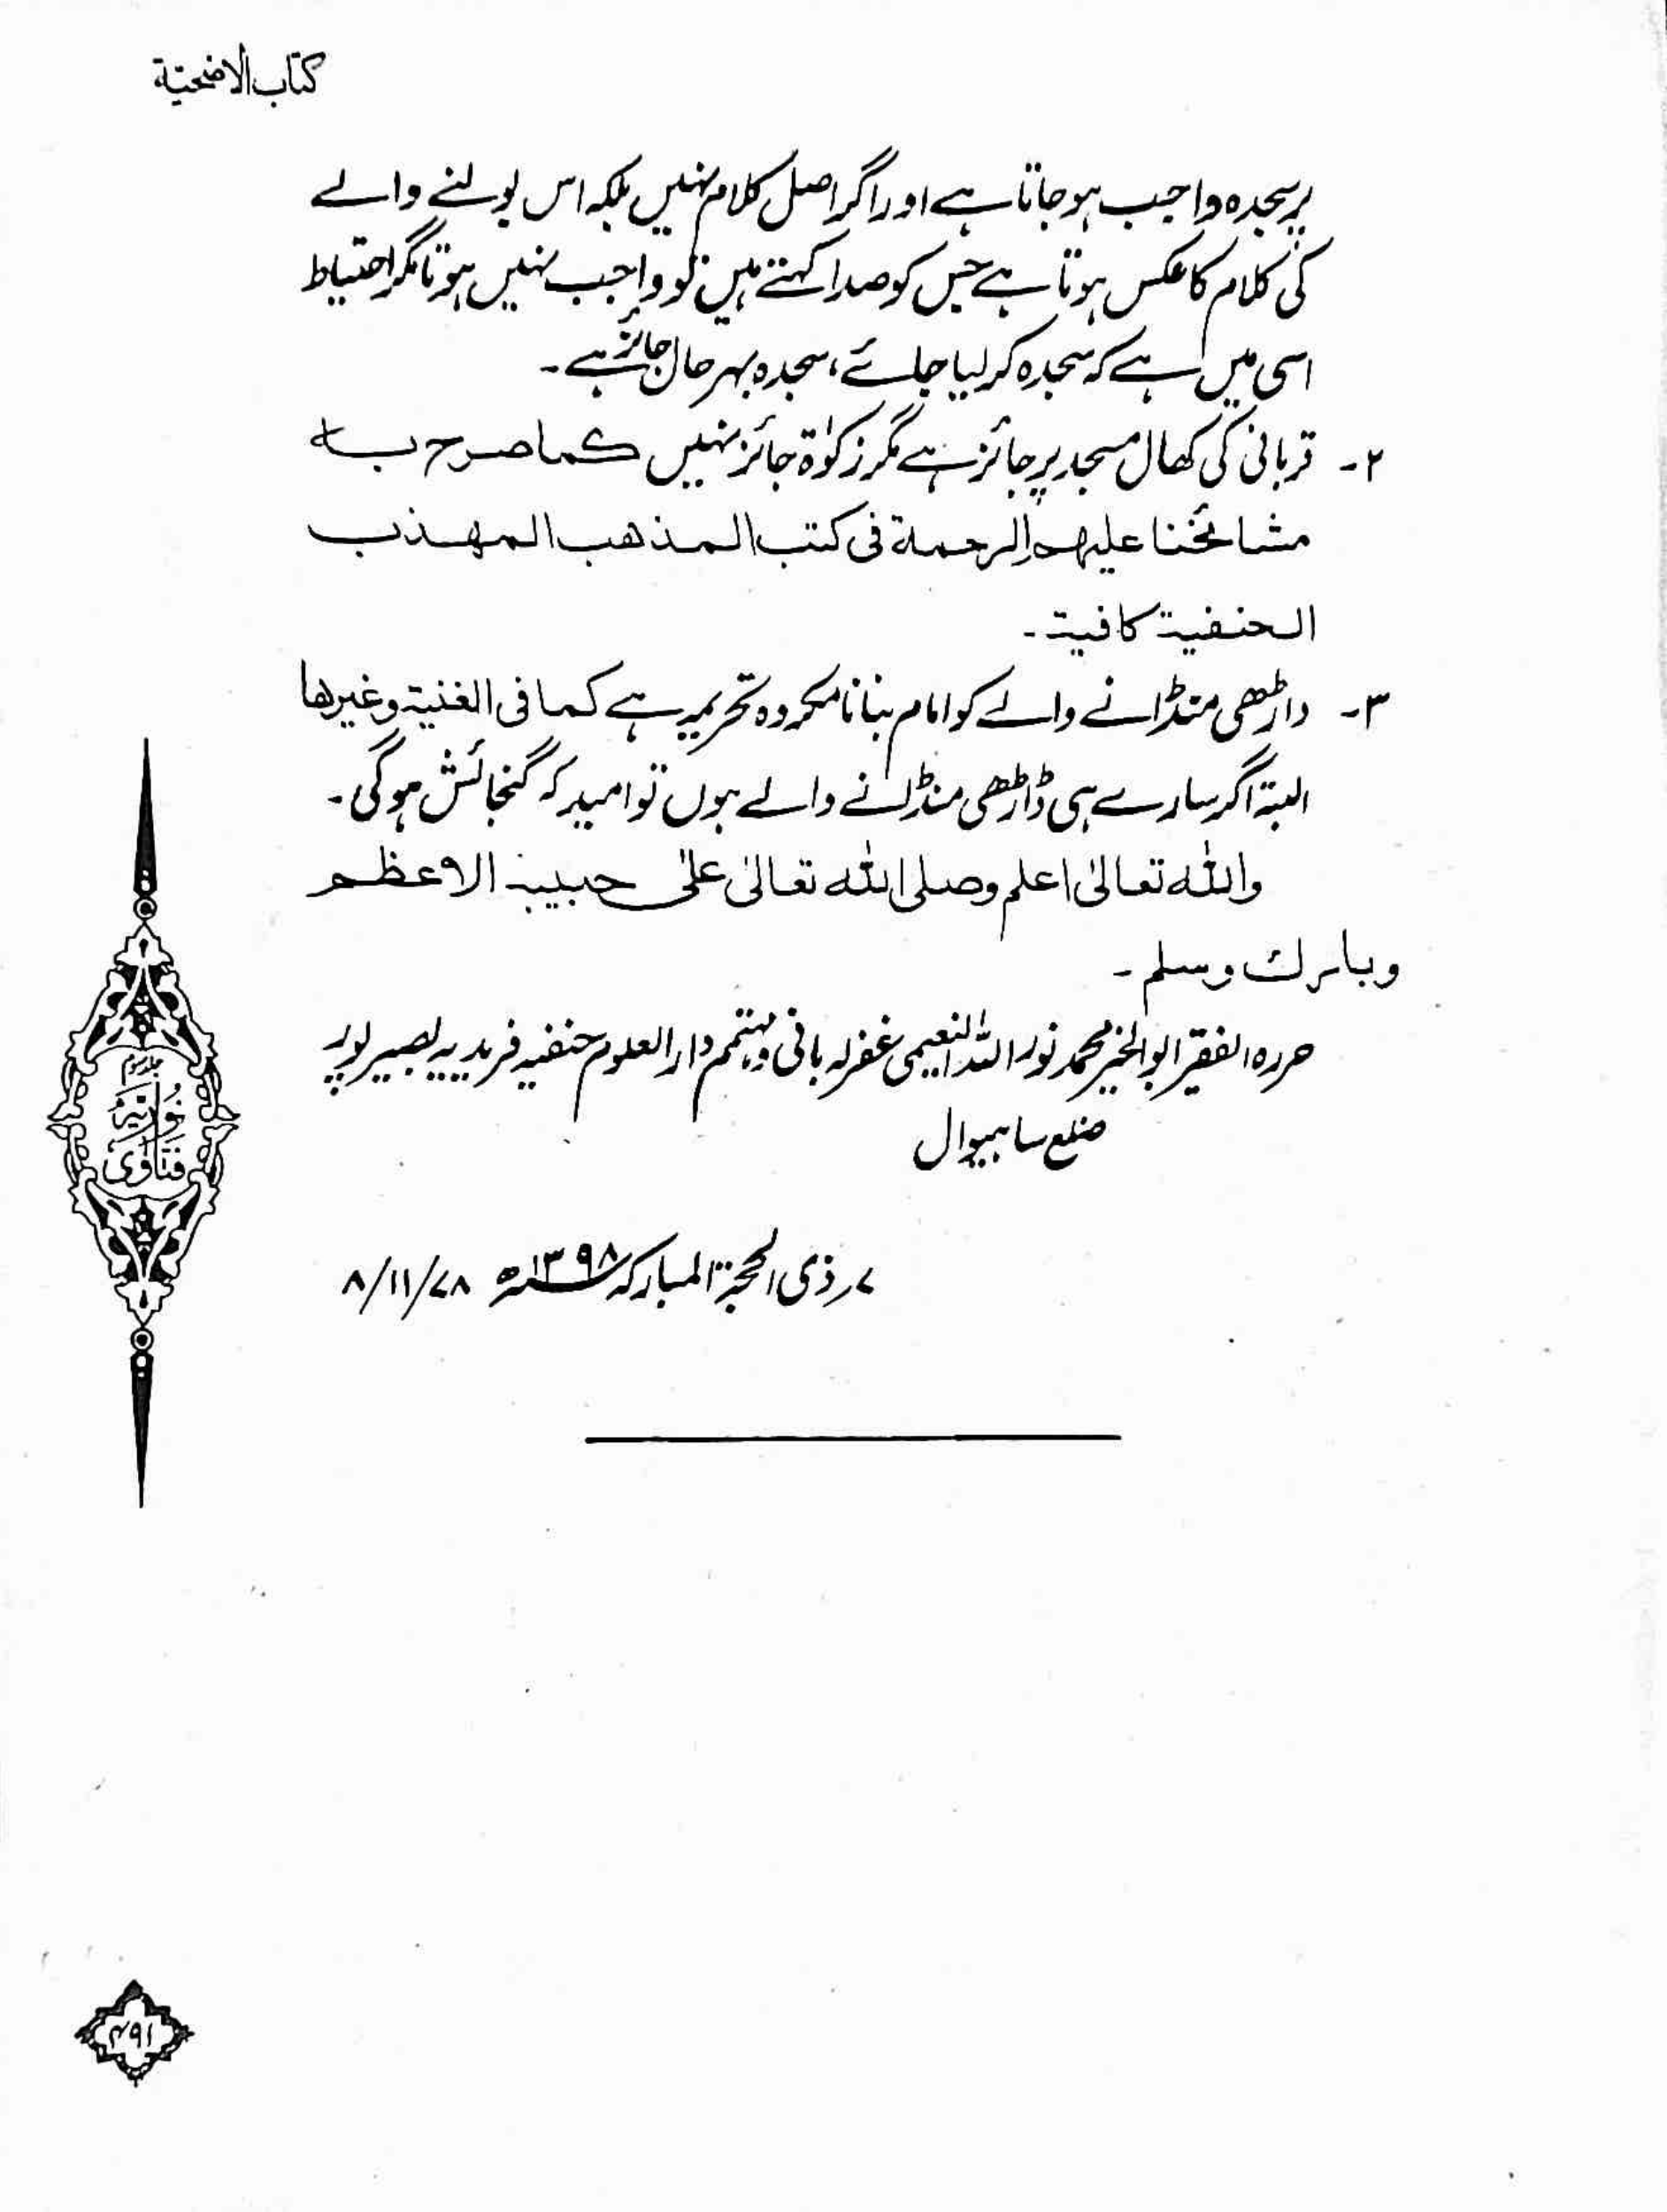 کتاب الاضحیّة
پر سجدہ واجب ہو جاتا ہے اور اگر اصل کلام نہیں بلکہ اس بولنے والے
کی کلام کا عکس ہوتا ہے جس کو صدا کہتے ہیں تو واجب نہیں ہوتا مگر احتیاط
اسی میں ہے کہ سجدہ کر لیا جائے، سجدہ بہر حال جائز ہے۔
۲۔ قربانی کی کھال مسجد پر جائز ہے مگر زکوٰۃ جائز نہیں کما صرح بہ
مشائخنا علیہم الرحمة فی کتب المذهب المهذب
الحنفیة کافیة۔
۳۔ داڑھی منڈانے والے کو امام بنانا مکروہ تحریمہ ہے کما فی الغنیة وغیرها
البتہ اگر سارے ہی ڈاڑھی منڈانے والے ہوں تو امید کہ گنجائش ہوگی۔
واللہ تعالیٰ اعلم وصلی اللہ تعالیٰ علیٰ حبیبہ الاعظم
وبارك وسلم۔
حررہ الفقیر ابوالخیر محمد نور اللہ النعیمی غفرلہ بانی و مہتمم دارالعلوم حنفیہ فریدیہ بصیر پور
ضلع ساہیوال
۷؍ ذی الحجۃ المبارکہ ۱۳۹۸ھ ۸/۱۱/۷۸
جلد سوم
نوریہ
فتاویٰ
۴۹۱